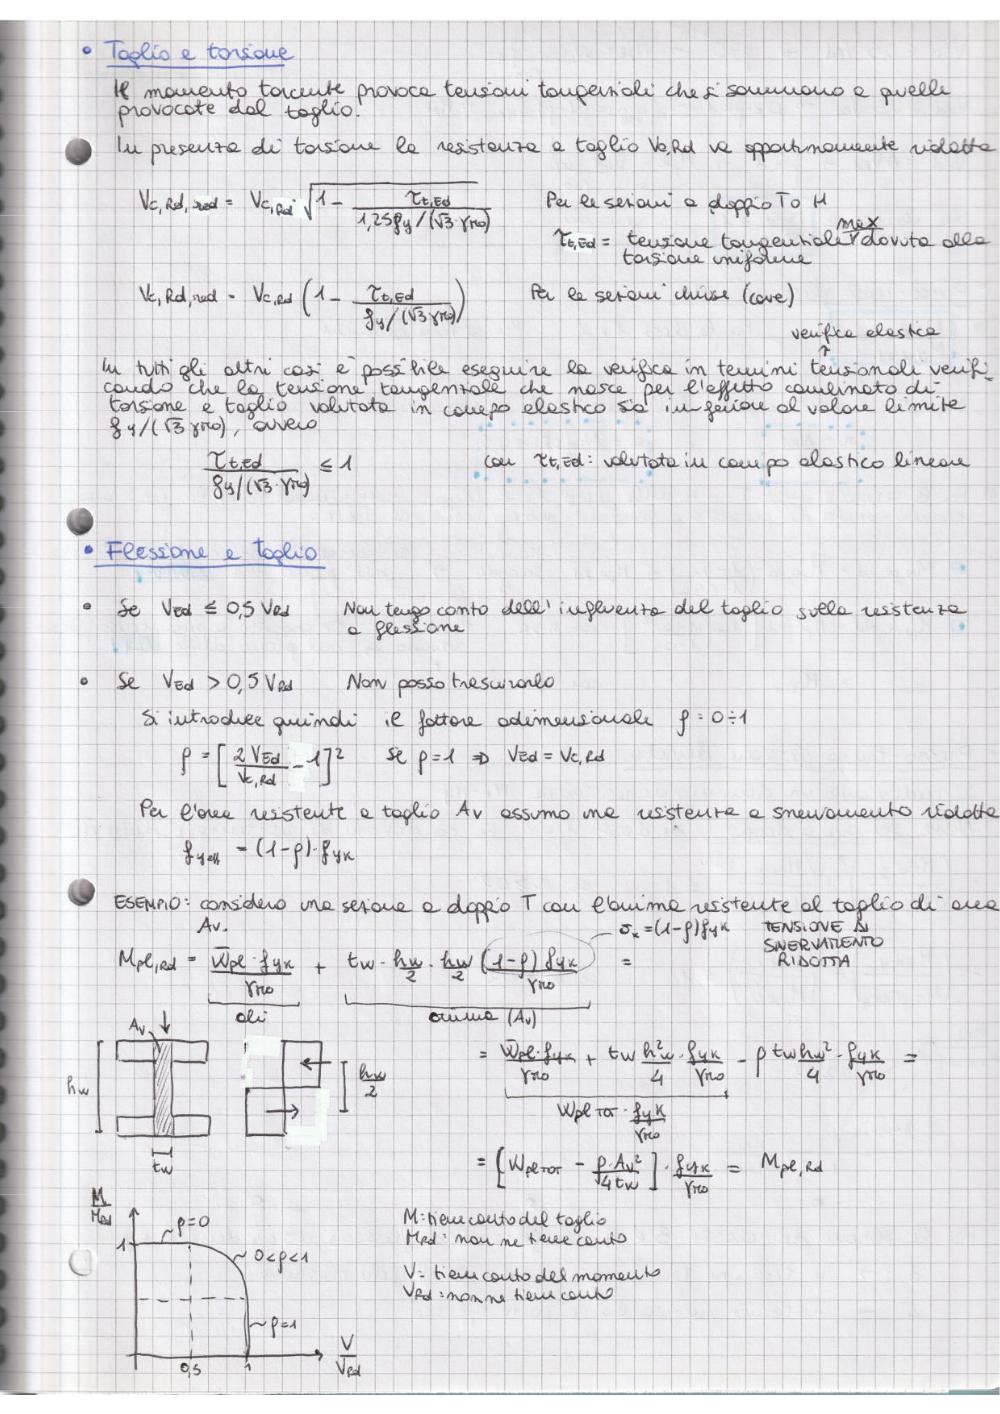 • Taglio e torsione
Il momento torcente provoca tensioni tangenziali che si sommano a quelle
provocate dal taglio.
In presenza di torsione la resistenza a taglio Vc,Rd va opportunamente ridotta
Vc,Rd,red = Vc,Rd √(1 - τt,Ed / (1,25 fyk/(√3·γM0))) Per le sezioni a doppio T o H
max
τt,Ed = tensione tangenziale dovuta alla
torsione uniforme
Vc,Rd,red = Vc,Rd (1 - τt,Ed / (fyk/(√3 γM0))) Per le sezioni chiuse (cave)
verifica elastica
↑
In tutti gli altri casi è possibile eseguire la verifica in termini tensionali verifi-
cando che la tensione tangenziale che nasce per l'effetto combinato di
torsione e taglio valutata in campo elastico sia inferiore al valore limite
fyk/(√3 γM0), ovvero
τt,Ed / (fyk/(√3·γM0)) ≤ 1 con τt,Ed: valutata in campo elastico lineare
• Flessione e taglio
• Se VEd ≤ 0,5 VRd Non tengo conto dell'influenza del taglio sulla resistenza
a flessione
• Se VEd > 0,5 VRd Non posso trascurarlo
Si introduce quindi il fattore adimensionale ρ = 0÷1
ρ = [2 VEd / Vc,Rd - 1]² se ρ=1 ⇒ VEd = Vc,Rd
Per l'area resistente a taglio Av assumo una resistenza a snervamento ridotta
fy eff = (1-ρ)·fyk
ESEMPIO: considero una sezione a doppio T con l'anima resistente al taglio di area
Av.
σx=(1-ρ)fyk TENSIONE DI
SNERVAMENTO
RIDOTTA
Mpl,Rd = W̄pl·fyk / γM0 + tw·hw/2·hw/2 (1-ρ) fyk / γM0 =
ali anima (Av)
Av
hw
tw
hw/2
= W̄pl·fyk / γM0 + tw hw²/4·fyk/γM0 - ρ tw hw²/4·fyk/γM0 =
Wpl TOT·fyk/γM0
= [Wpl TOT - ρ·Av²/4tw]·fyk/γM0 = Mpl,Rd
M/MRd
1
ρ=0
0<ρ<1
ρ=1
0,5 1 V/VRd
M: tiene conto del taglio
MRd: non ne tiene conto
V: tiene conto del momento
VRd: non ne tiene conto